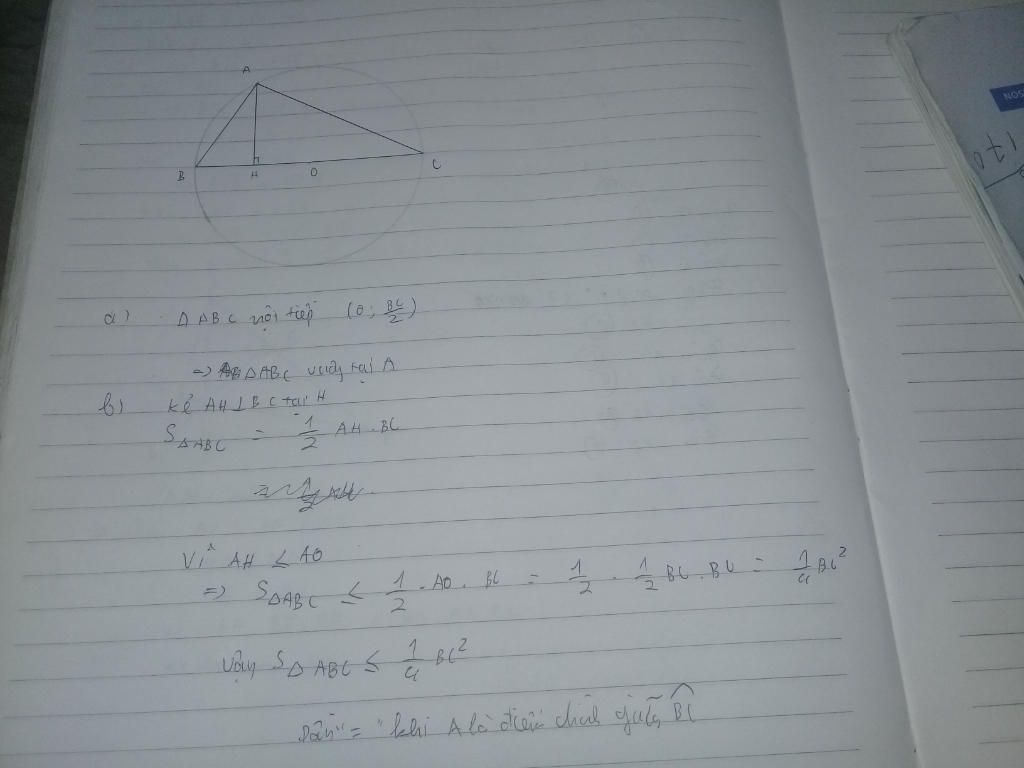 A
B H O C
a) Δ ABC nội tiếp (O; BC/2)
=> Δ ABC vuông tại A
b) kẻ AH ⊥ BC tại H
S ΔABC = 1/2 AH . BC
Vì AH ≤ AO
=> S ΔABC ≤ 1/2 . AO . BC = 1/2 . 1/2 BC . BC = 1/4 BC²
Vậy S Δ ABC ≤ 1/4 BC²
Dấu "=" khi A là điểm chính giữa BC